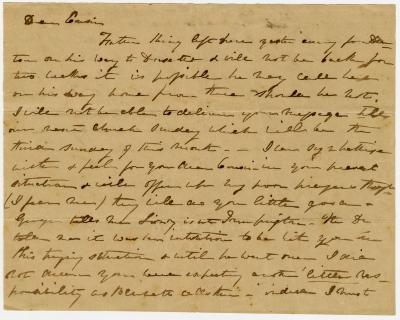 Dear Cousin
Father King left here yesterday for
on his way to & will not be back for
two weeks it is possible he may call here
on his way home from there should he not,
I will not be able to deliver your message till
our next church Sunday which will be the
third Sunday of this month. — I can sympathise
with & feel for you dear Cousin in your present
situation & will offer up my poor prayers though
(I fear me) they will do you little good –
tells me is at
me it was his intention to be with you in
this trying situation & until he went over I did
not dream you were expecting another "little res-
ponsibility as calls him" – indeed I must